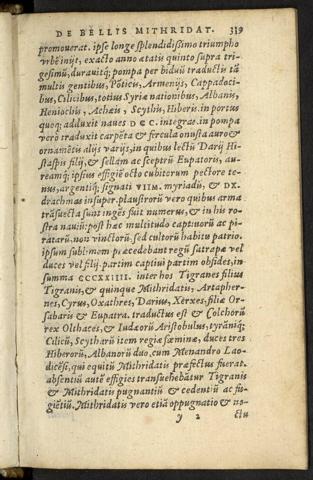 DE BELLIS MITHRIDAT. 339
promouerat. ipse longe splendidißimo triumpho
vrbē inijt, exacto anno ætatis quinto supra tri-
gesimū, durauitq; pompa per biduū traductis tā
multis gentibus, Pōticis, Armenijs, Cappadoci-
bus, Cilicibus, totius Syriæ nationibus, Albanis,
Heniochis, Achæis, Scythis, Hiberis. in portus
quoq; adduxit naues DCC. integras. in pompa
verò traduxit carpēta & fercula onusta auro &
ornamētis alijs varijs, in quibus lectū Darij Hi-
staspis filij, & sellam ac sceptrū Eupatoris, au-
reamq; ipsius effigiē octo cubitorum pectore te-
nus, argentiq; signati VIIM. myriadū, & DX.
drachmas insuper. plaustrorū vero quibus arma
trāsuecta sunt ingēs fuit numerus, & in his ro-
stra nauiū: post hæc multitudo captiuorū ac pi-
ratarū. non vinctorū. sed cultorū habitu patrio.
ipsum sublimem præcedebant regū satrapæ vel
duces vel filij. partim captiui partim obsides, in
summa CCCXXIIII. inter hos Tigranes filius
Tigranis, & quinque Mithridatis, Artapher-
nes, Cyrus, Oxathres, Darius, Xerxes, filiæ Or-
sabaris & Eupatra. traductus est & Colchorū
rex Olthaces, & Iudæorū Aristobulus, tyrāniq;
Cilicū, Scytharū item regiæ fœminæ, duces tres
Hiberorū, Albanorū duo. cum Menandro Lao-
dicēse, qui equitū Mithridatis præfectus fuerat.
absentiū autē effigies transuehebātur Tigranis
& Mithridatis pugnantiū & cedentiū ac fu-
gietiū. Mithridatis vero etiā oppugnatio & no-
y 2 ctu